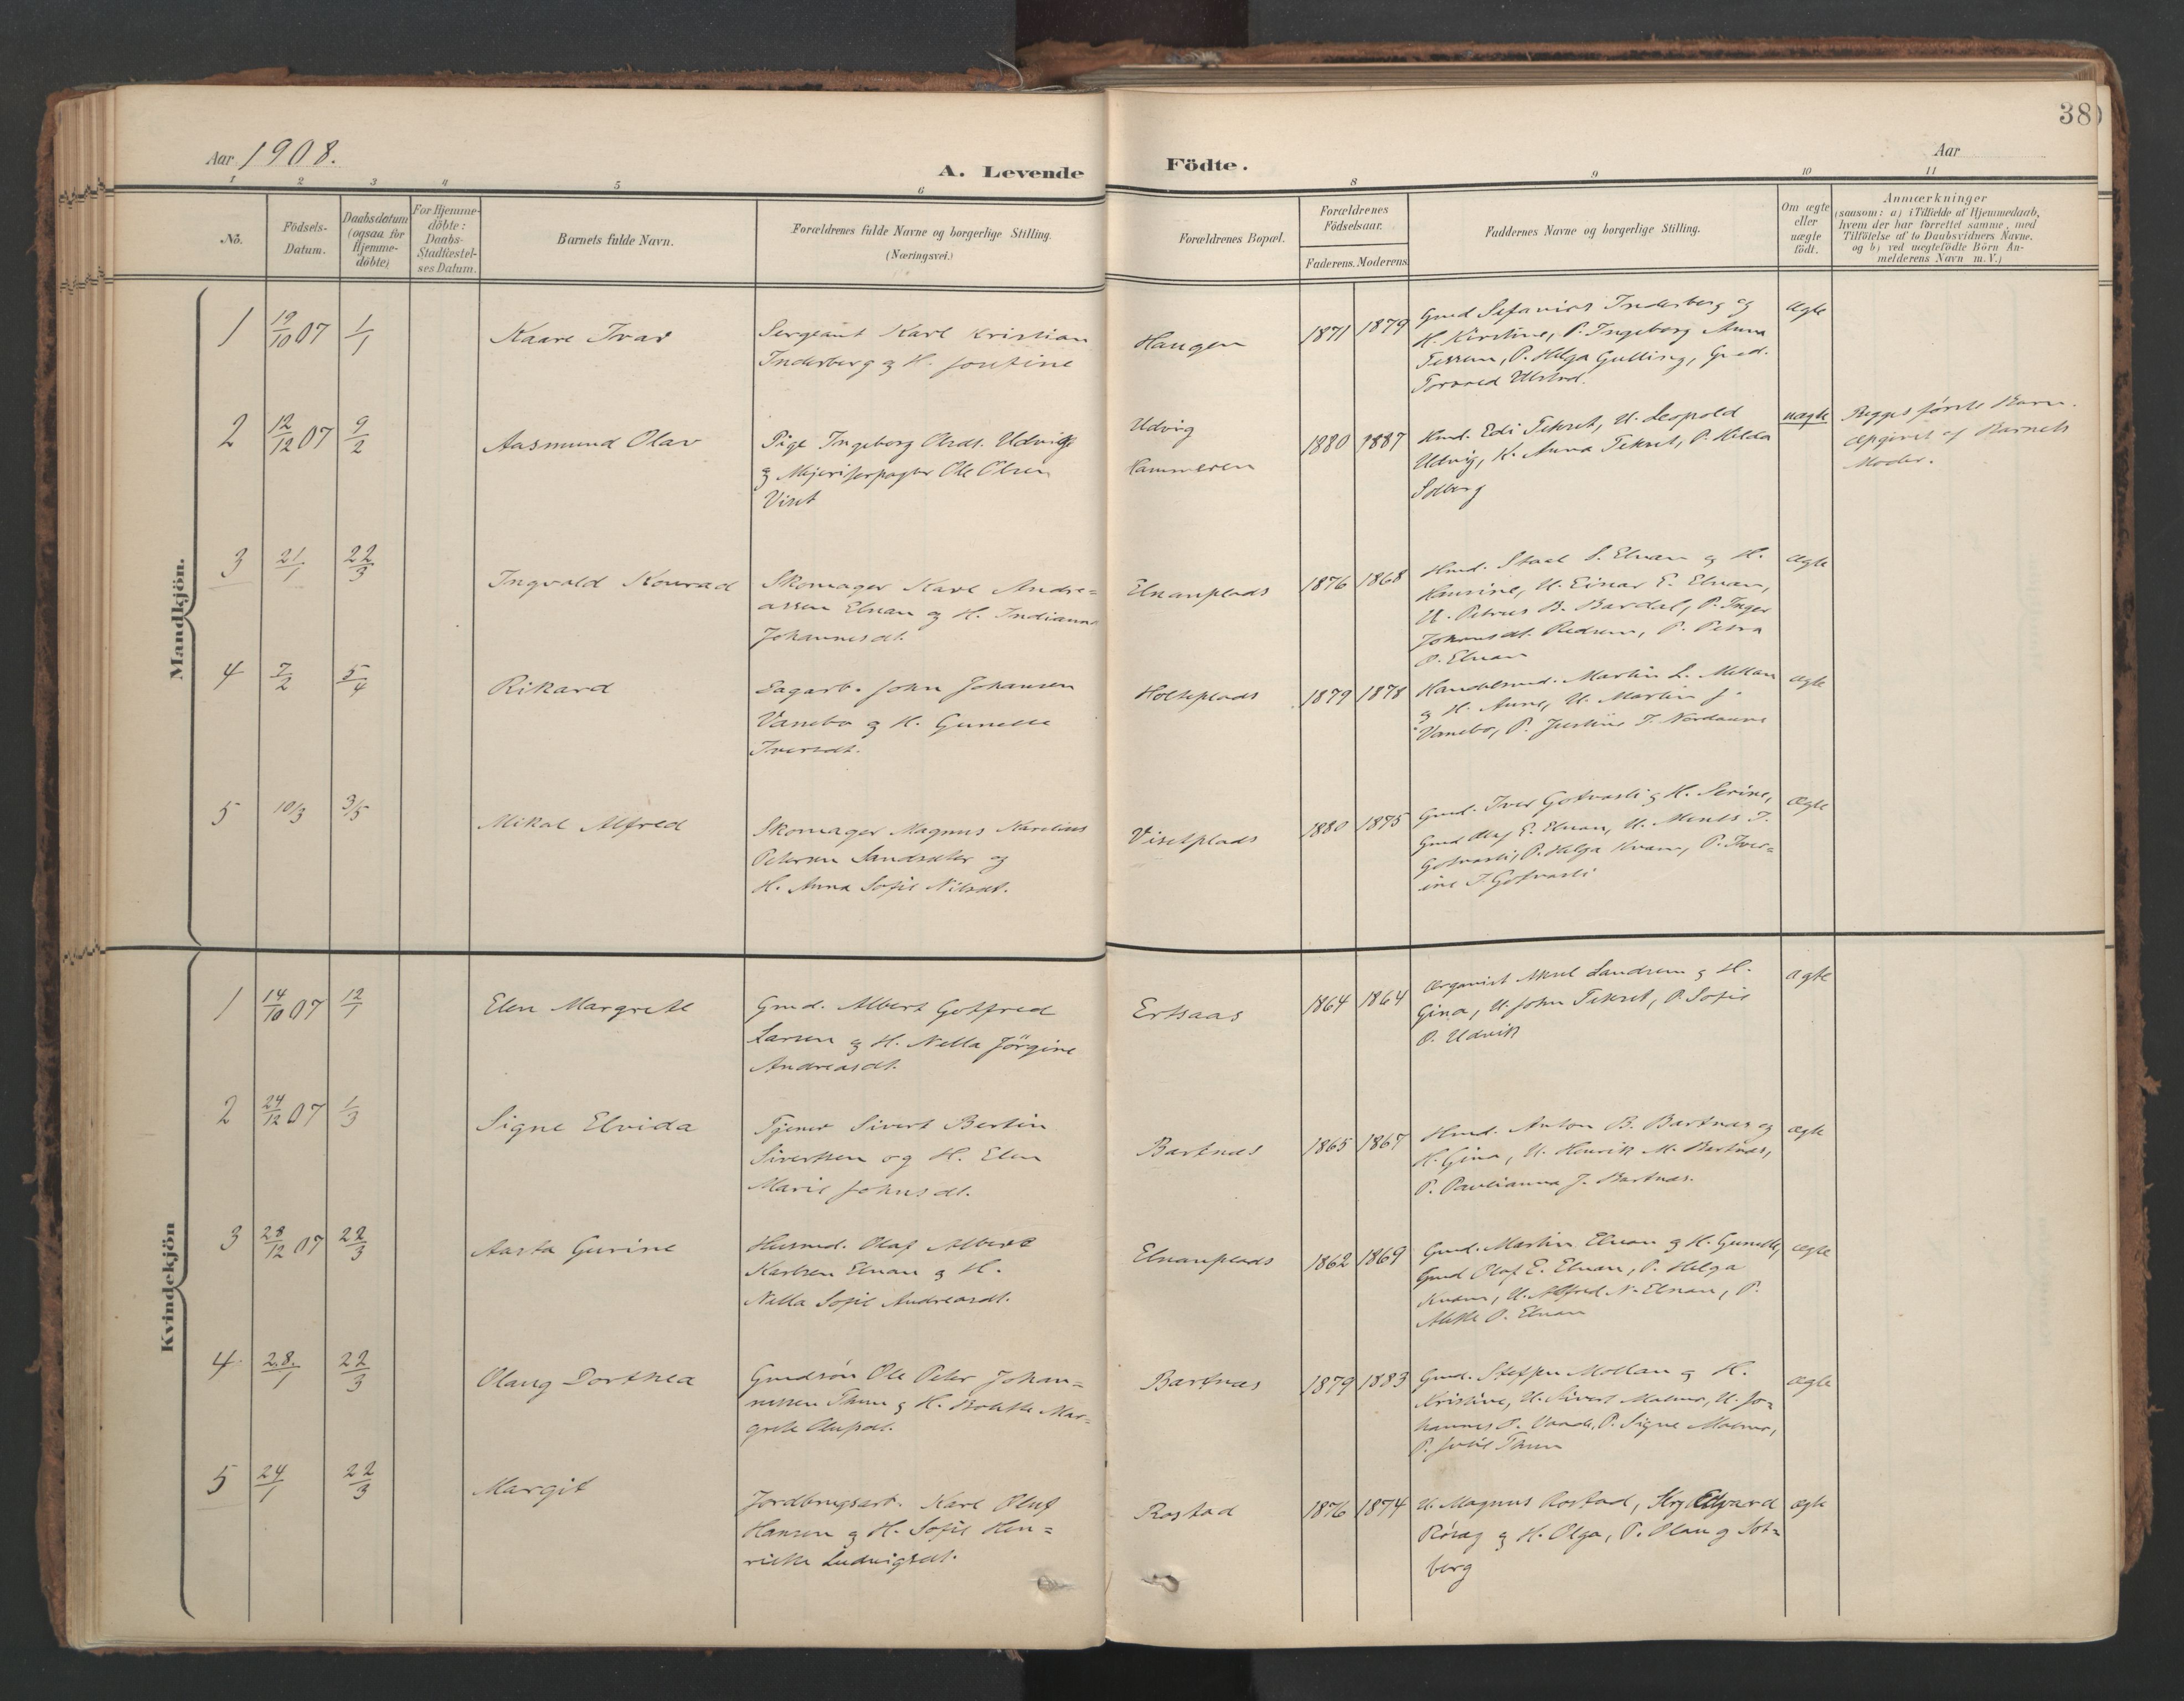 38
Aar 1908.
A. Levende Födte.
Aar
1 2 3 4 5 6 8 9 10 11
No.
Födsels-
Datum.
Daabsdatum
(ogsaa for
Hjemme-
döbte)
For Hjemme-
döbte:
Daabs-
Stadfæstel-
ses Datum.
Barnets fulde Navn.
Forældrenes fulde Navne og borgerlige Stilling.
(Næringsvei.)
Forældrenes Bopæl.
Forældrenes
Födselsaar.
Faderens. Moderens.
Faddernes Navne og borgerlige Stilling.
Om ægte
eller
uægte
födt.
Anmærkninger
(saasom: a) i Tilfælde af Hjemmedaab,
hvem der har forrettet samme, med
Tilföielse af to Daabsvidners Navne.
og b) ved uægtefödte Börn An-
melderens Navn m.V.)
Mandkjön.
1 19/10 07 1/1 Kaare Ivar
Sergeant Karl Kristian
Inderberg og H. Josefine
Haugen 1871 1879
Gmd Inderberg og
H. Kirstine, P. Ingeborg Anna
Tessem, P. Helga Gulling, Gmd.
Torvald Ulstad.
ægte
2 12/12 07 9/2 Aasmund Olav
Pige Ingeborg Olsdt. Udvig
og Meieriforpagter Ole Olsen
Viset
Udvig
Kammeren
1880 1887
Kmd. Edi Tekset, U. Leopold
Udvig, K. Anna Tekset, P. Hilda
Solberg
uægte
Begges første Barn.
Opgivet af Barnets
Moder.
3 21/1 22/3 Ingvald Konrad
Skomager Karl Andre=
assen Elnan og H. Indianna
Johannesdt.
Elnanplads 1876 1868
Hmd. S. Elnan og H.
U. Einar E. Elnan,
U. Petrus B. Bardal, P. Inger
Johansdt. P. Petra
P. Elnan
ægte
4 7/2 5/4 Rikard
Sagarb. John Johansen
Vanebo og H. Gunelle
Iversdt.
Holteplads 1879 1878
Handelsmd. Martin L.
og H. Anne, U. Martin J.
Vanebo, P. Justine J. Nordaune
ægte
5 10/3 3/5 Mikal Alfred
Skomager Magnus Karelius
Petersen Landsæter og
H. Anna Sofie Nilsdt.
Visetplads 1880 1875
Gmd. Iver Gotvasli og H. Serine,
Gmd Oluf E. Elnan, U. I.
Gotvasli, P. Helga Kvam, P. Iver=
ine I. Gotvasli
ægte
Kvindekjön
1 14/10 07 12/1 Elen Margrete
Gmd. Albert Gotfred
Larsen og H. Nella Jörgine
Andreasdt.
Ertsaas 1864 1864
Organist Aksel Landsem og H.
Gina, U. John Tekset, P. Sofie
O. Udvik
ægte
2 24/12 07 1/3 Signe Elvida
Tjener Sivert Bertin
Sivertsen og H. Elen
Marie Johnsdt.
Bartnes 1865 1867
Hmd. Anton B. Bartnes og
H. Gina, U. Henrik M. Bartnes,
P. Paulianna J. Bartnes.
ægte
3 28/12 07 22/3 Aasta Gurine
Husmd. Olaf Albert
Karlsen Elnan og H.
Nella Sofie Andreasdt.
Elnanplads 1862 1869
Gmd. Martin Elnan og H. Gunelle,
Gmd Olaf E. Elnan, P. Helga
Kvam, U. Alfred N. Elnan, P.
P. Elnan
ægte
4 28/1 22/3 Olaug Dorthea
Gmdsøn Ole Peter Johan=
nessen Thun og H. Bolette Mar=
grete Olufsdt.
Bartnes 1879 1883
Gmd. Steffen Mollan og H.
Kristine, U. Sivert Malmo, U. Jo=
hannes P. P. Signe Malmo,
P. Julie Thun
ægte
5 24/1 22/3 Margit
Jordbrugsarb. Karl Oluf
Hansen og H. Sofie Hen=
rikke Ludvigsdt.
Rostad 1876 1874
U. Magnus Rostad, Edvard
og H. Olga, P. Olaug Sol=
berg
ægte